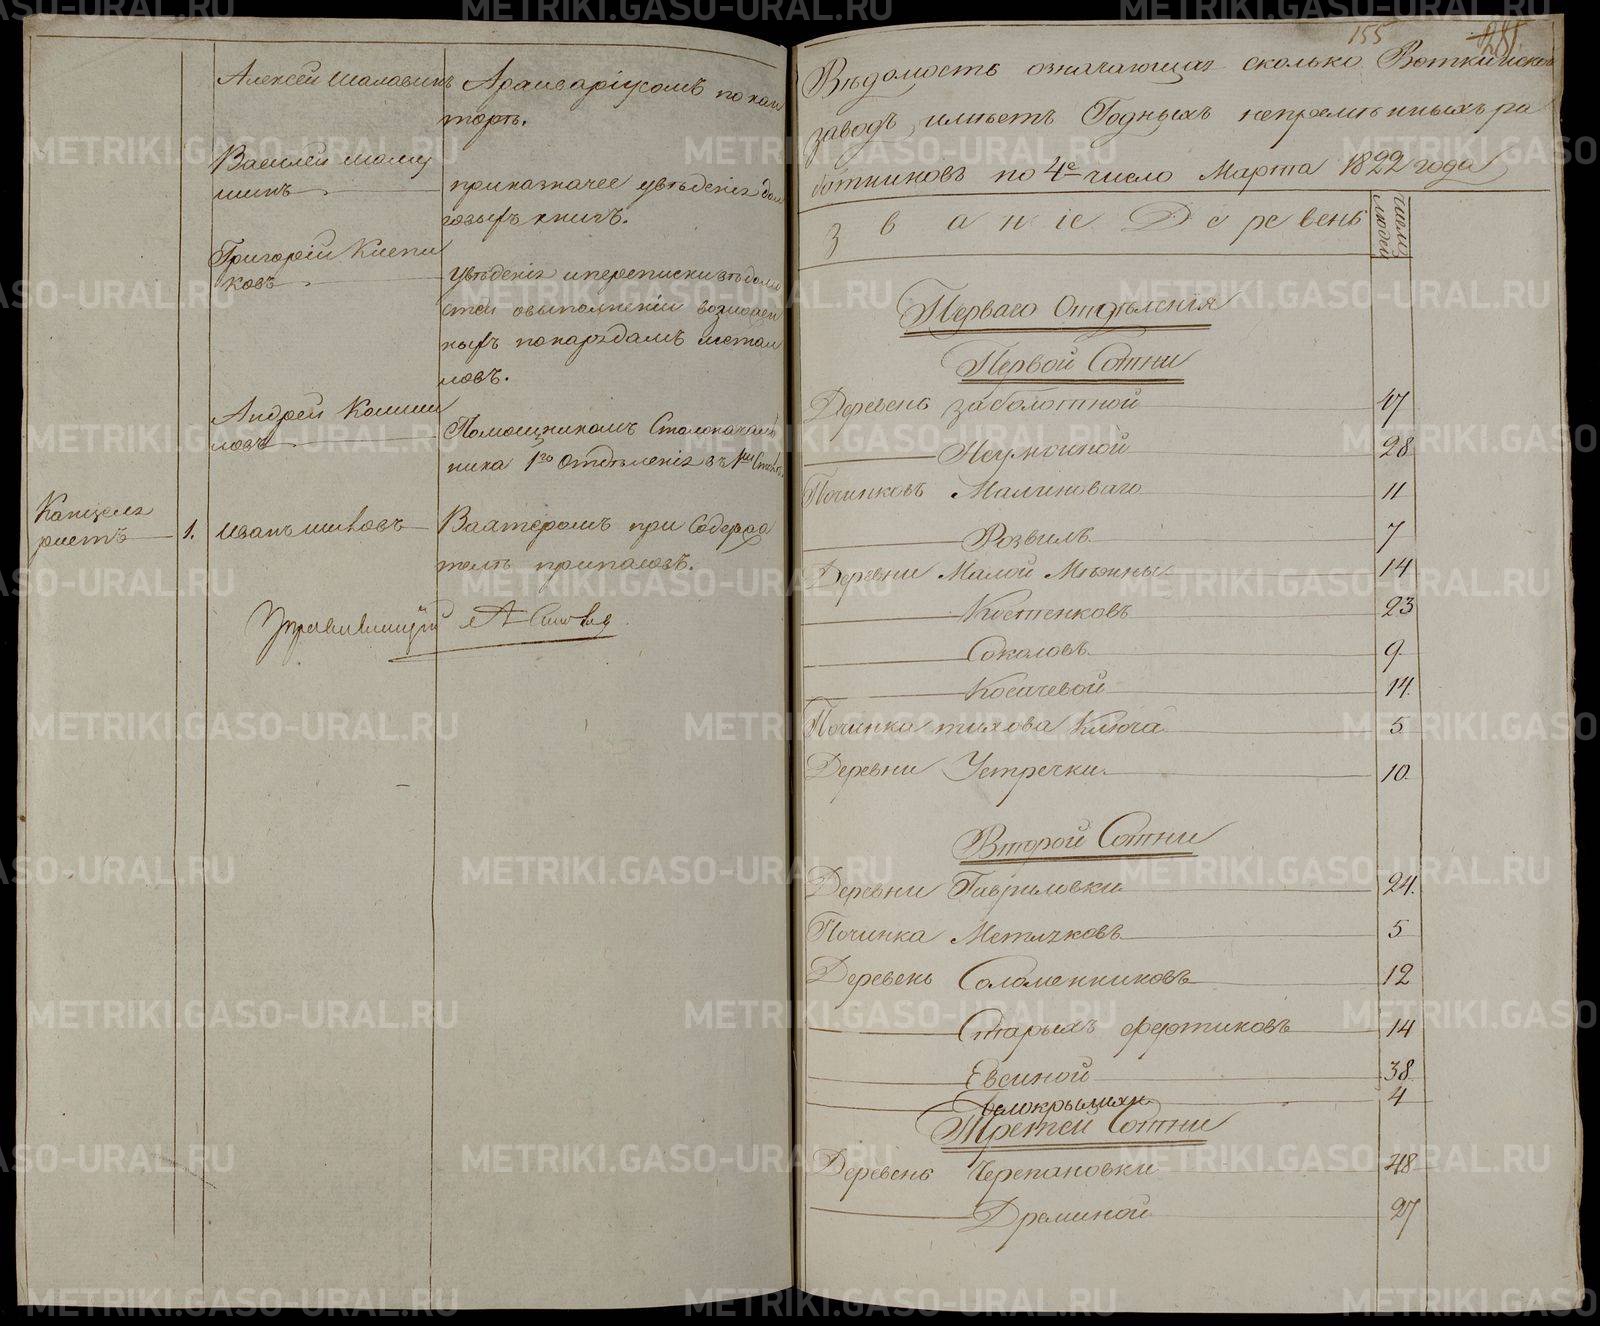 Алексей Шалавинъ
Архиваріусомъ по кан
торѣ.
Василей Мому
шинъ
при казначее у вѣденія дол
говыхъ книгъ.
Григорей Клепи
ковъ
У вѣденія и переписки вѣдомо
стей о выполненіи возлогаем
ныхъ по нарядамъ металл
ловъ.
Андрей Колыш
ловъ
Помощникомъ Столоначаль
ника 1го Отдѣленія въ 1мъ Столе
Канцеля
ристъ
1.
Иванъ Шиловъ
Вахтеромъ при Содержа
телѣ припасовъ.
Управляющій
155
Вѣдомость означающая сколько Воткинской
заводъ имѣетъ Годныхъ непремѣнныхъ ра
ботниковъ по 4е число Марта 1822 года
Званіе Деревень
число людей
Перваго Отдѣленія
Первой Сотни
Деревень Заболотной 47
Неумоиной 28
Починковъ Малиноваго 11
Розвилъ 7
Деревни Малой Мѣжны 14
Костенковъ 23
Соколовъ 9
Косачевой 14.
Починка тихова Ключа 5
Деревни Устречки 10.
Второй Сотни
Деревни Гавриловки 24.
Починка Метляковъ 5
Деревень Соломенниковъ 12
Старыхъ Фертиковъ 14
Евсиной 38
Белокрылихи 4
Третей Сотни
Деревень Черепановки 48
Дреминой 27